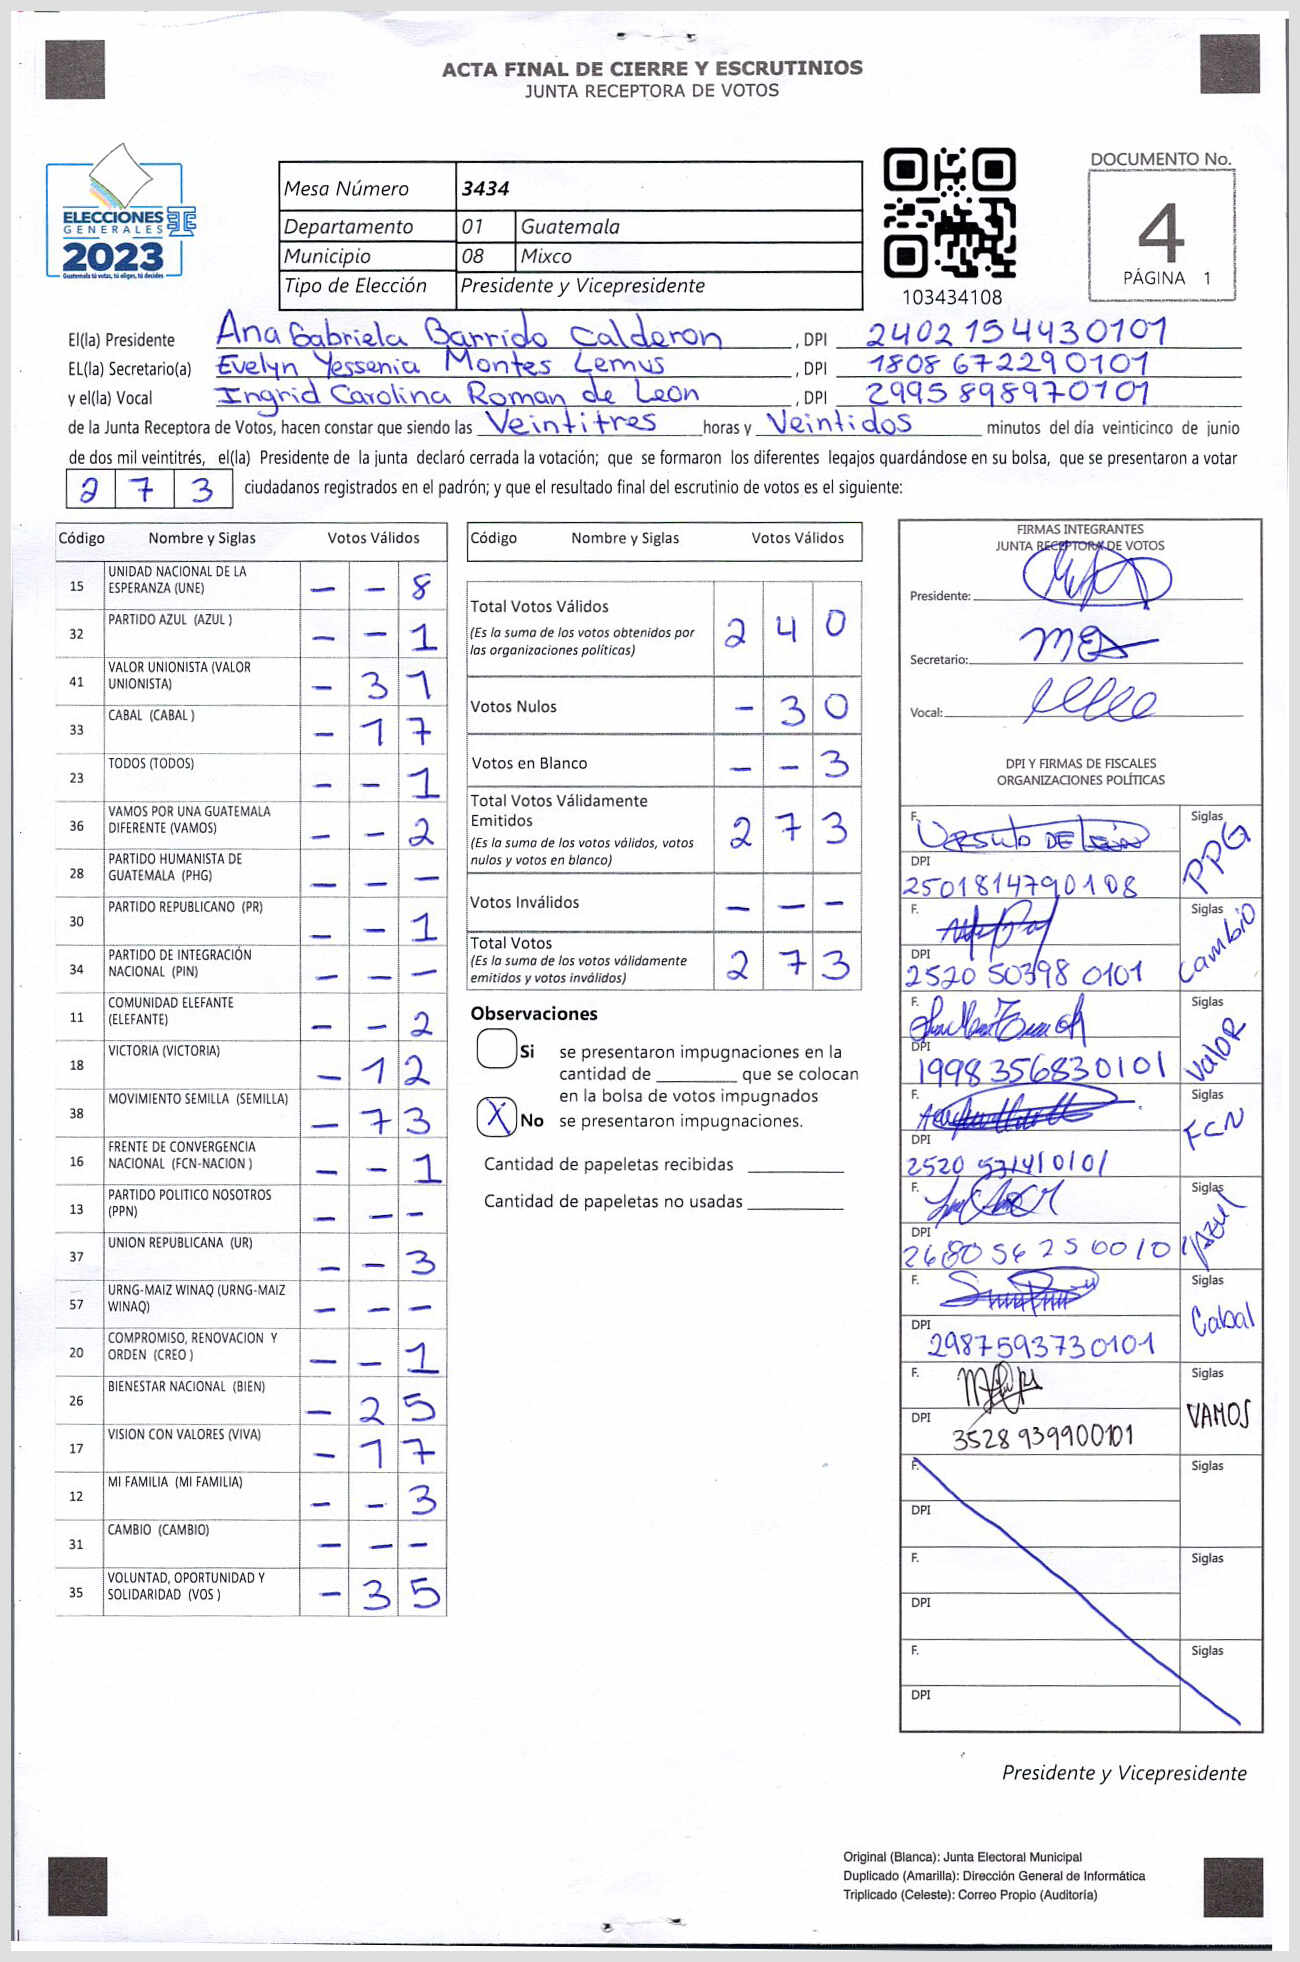 ACTA FINAL DE CIERRE Y ESCRUTINIOS
JUNTA RECEPTORA DE VOTOS
ELECCIONES
GENERALES
2023
Guatemala tú votas, tú eliges, tú decides
Mesa Número 3434
Departamento 01 Guatemala
Municipio 08 Mixco
Tipo de Elección Presidente y Vicepresidente
103434108
DOCUMENTO No.
4
PÁGINA 1
El(la) Presidente Ana Gabriela Barrido Calderon, DPI 2402 15443 0101
EL(la) Secretario(a) Evelyn Yessenia Montes Lemus, DPI 1808 67229 0101
y el(la) Vocal Ingrid Carolina Roman de Leon, DPI 2995 89897 0101
de la Junta Receptora de Votos, hacen constar que siendo las Veintitres horas y Veintidos minutos del día veinticinco de junio
de dos mil veintitrés, el(la) Presidente de la junta declaró cerrada la votación; que se formaron los diferentes legajos guardándose en su bolsa, que se presentaron a votar
2 7 3 ciudadanos registrados en el padrón; y que el resultado final del escrutinio de votos es el siguiente:
Código Nombre y Siglas Votos Válidos
15 UNIDAD NACIONAL DE LA ESPERANZA (UNE) - - 8
32 PARTIDO AZUL (AZUL ) - - 1
41 VALOR UNIONISTA (VALOR UNIONISTA) - 3 1
33 CABAL (CABAL ) - 1 7
23 TODOS (TODOS) - - 1
36 VAMOS POR UNA GUATEMALA DIFERENTE (VAMOS) - - 2
28 PARTIDO HUMANISTA DE GUATEMALA (PHG) - - -
30 PARTIDO REPUBLICANO (PR) - - 1
34 PARTIDO DE INTEGRACIÓN NACIONAL (PIN) - - -
11 COMUNIDAD ELEFANTE (ELEFANTE) - - 2
18 VICTORIA (VICTORIA) - 1 2
38 MOVIMIENTO SEMILLA (SEMILLA) - 7 3
16 FRENTE DE CONVERGENCIA NACIONAL (FCN-NACION ) - - 1
13 PARTIDO POLITICO NOSOTROS (PPN) - - -
37 UNION REPUBLICANA (UR) - - 3
57 URNG-MAIZ WINAQ (URNG-MAIZ WINAQ) - - -
20 COMPROMISO, RENOVACION Y ORDEN (CREO ) - - 1
26 BIENESTAR NACIONAL (BIEN) - 2 5
17 VISION CON VALORES (VIVA) - 1 7
12 MI FAMILIA (MI FAMILIA) - - 3
31 CAMBIO (CAMBIO) - - -
35 VOLUNTAD, OPORTUNIDAD Y SOLIDARIDAD (VOS ) - 3 5
Código Nombre y Siglas Votos Válidos
Total Votos Válidos 2 4 0
(Es la suma de los votos obtenidos por
las organizaciones políticas)
Votos Nulos - 3 0
Votos en Blanco - - 3
Total Votos Válidamente
Emitidos 2 7 3
(Es la suma de los votos válidos, votos
nulos y votos en blanco)
Votos Inválidos - - -
Total Votos 2 7 3
(Es la suma de los votos válidamente
emitidos y votos inválidos)
Observaciones
Si se presentaron impugnaciones en la
cantidad de ________ que se colocan
en la bolsa de votos impugnados
X No se presentaron impugnaciones.
Cantidad de papeletas recibidas
Cantidad de papeletas no usadas
FIRMAS INTEGRANTES
JUNTA RECEPTORA DE VOTOS
Presidente:
Secretario:
Vocal:
DPI Y FIRMAS DE FISCALES
ORGANIZACIONES POLÍTICAS
F. Siglas PPG
DPI
2501814790108
F. Siglas Cambio
DPI
2520 50398 0101
F. Siglas Valor
DPI
1998 35683 0101
F. Siglas FCN
DPI
2520
F. Siglas Azul
DPI
26805625 00101
F. Siglas Cabal
DPI
2987593730101
F. Siglas VAMOS
DPI
3528 939900101
F. Siglas
DPI
F. Siglas
DPI
F. Siglas
DPI
Presidente y Vicepresidente
Original (Blanca): Junta Electoral Municipal
Duplicado (Amarilla): Dirección General de Informática
Triplicado (Celeste): Correo Propio (Auditoría)